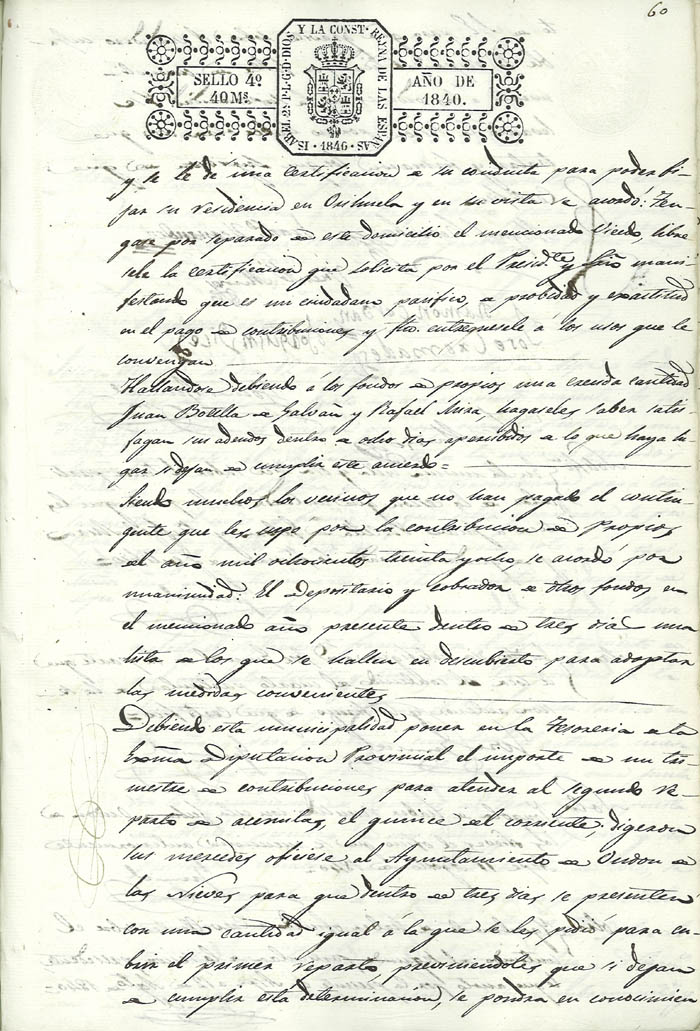 60
ISABEL 2ª P.L.G.D.DIOS Y LA CONST. REYNA DE LAS ESPAÑAS
SELLO 4º
40 Ms
AÑO DE
1840.
1846
y se le dé una certificacion de su conducta para poder fi-
jar su residencia en Orihuela y en su vista se acordó: Ten-
gase por separado de este domicilio el mencionado libre
sele la certificacion que solicita por el Presidte y Srio mani
festando que es un ciudadano pacifico, de probidad y exactitud
en el pago de contribuciones y fho. entreguesele á los usos que le
convengan
Hallandose debiendo á los fondos de propios una crecida cantidad
Juan Botella de Galvañ y Rafael Mira, hagaseles saber satis
fagan sus adeudos dentro de ocho dias apercibidos de lo que haya lu
gar si dejan de cumplir este acuerdo =
Siendo muchos los vecinos que no han pagado el contin
gente que les cupo por la contribucion de Propios,
del año mil ochocientos treinta y ocho, se acordó por
unanimidad: El Depositario y cobrador de dhos fondos en
el mencionado año presente dentro de tres dias una
lista de los que se hallen en descubierto para adoptar
las medidas convenientes
Debiendo esta municipalidad poner en la Tesoreria de la
Exma Diputacion Provincial el importe de un tri
mestre de contribuciones para atender al segundo re
parto de acemilas, el quince del corriente; digeron
sus mercedes oficiese al Ayuntamiento de Ondon de
las Nieves para que dentro de tres dias se presenten
con una cantidad igual á la que se les pidió para cu-
brir el primer reparto, previniendoles que si dejan
de cumplir esta determinacion, se pondra en conocimien